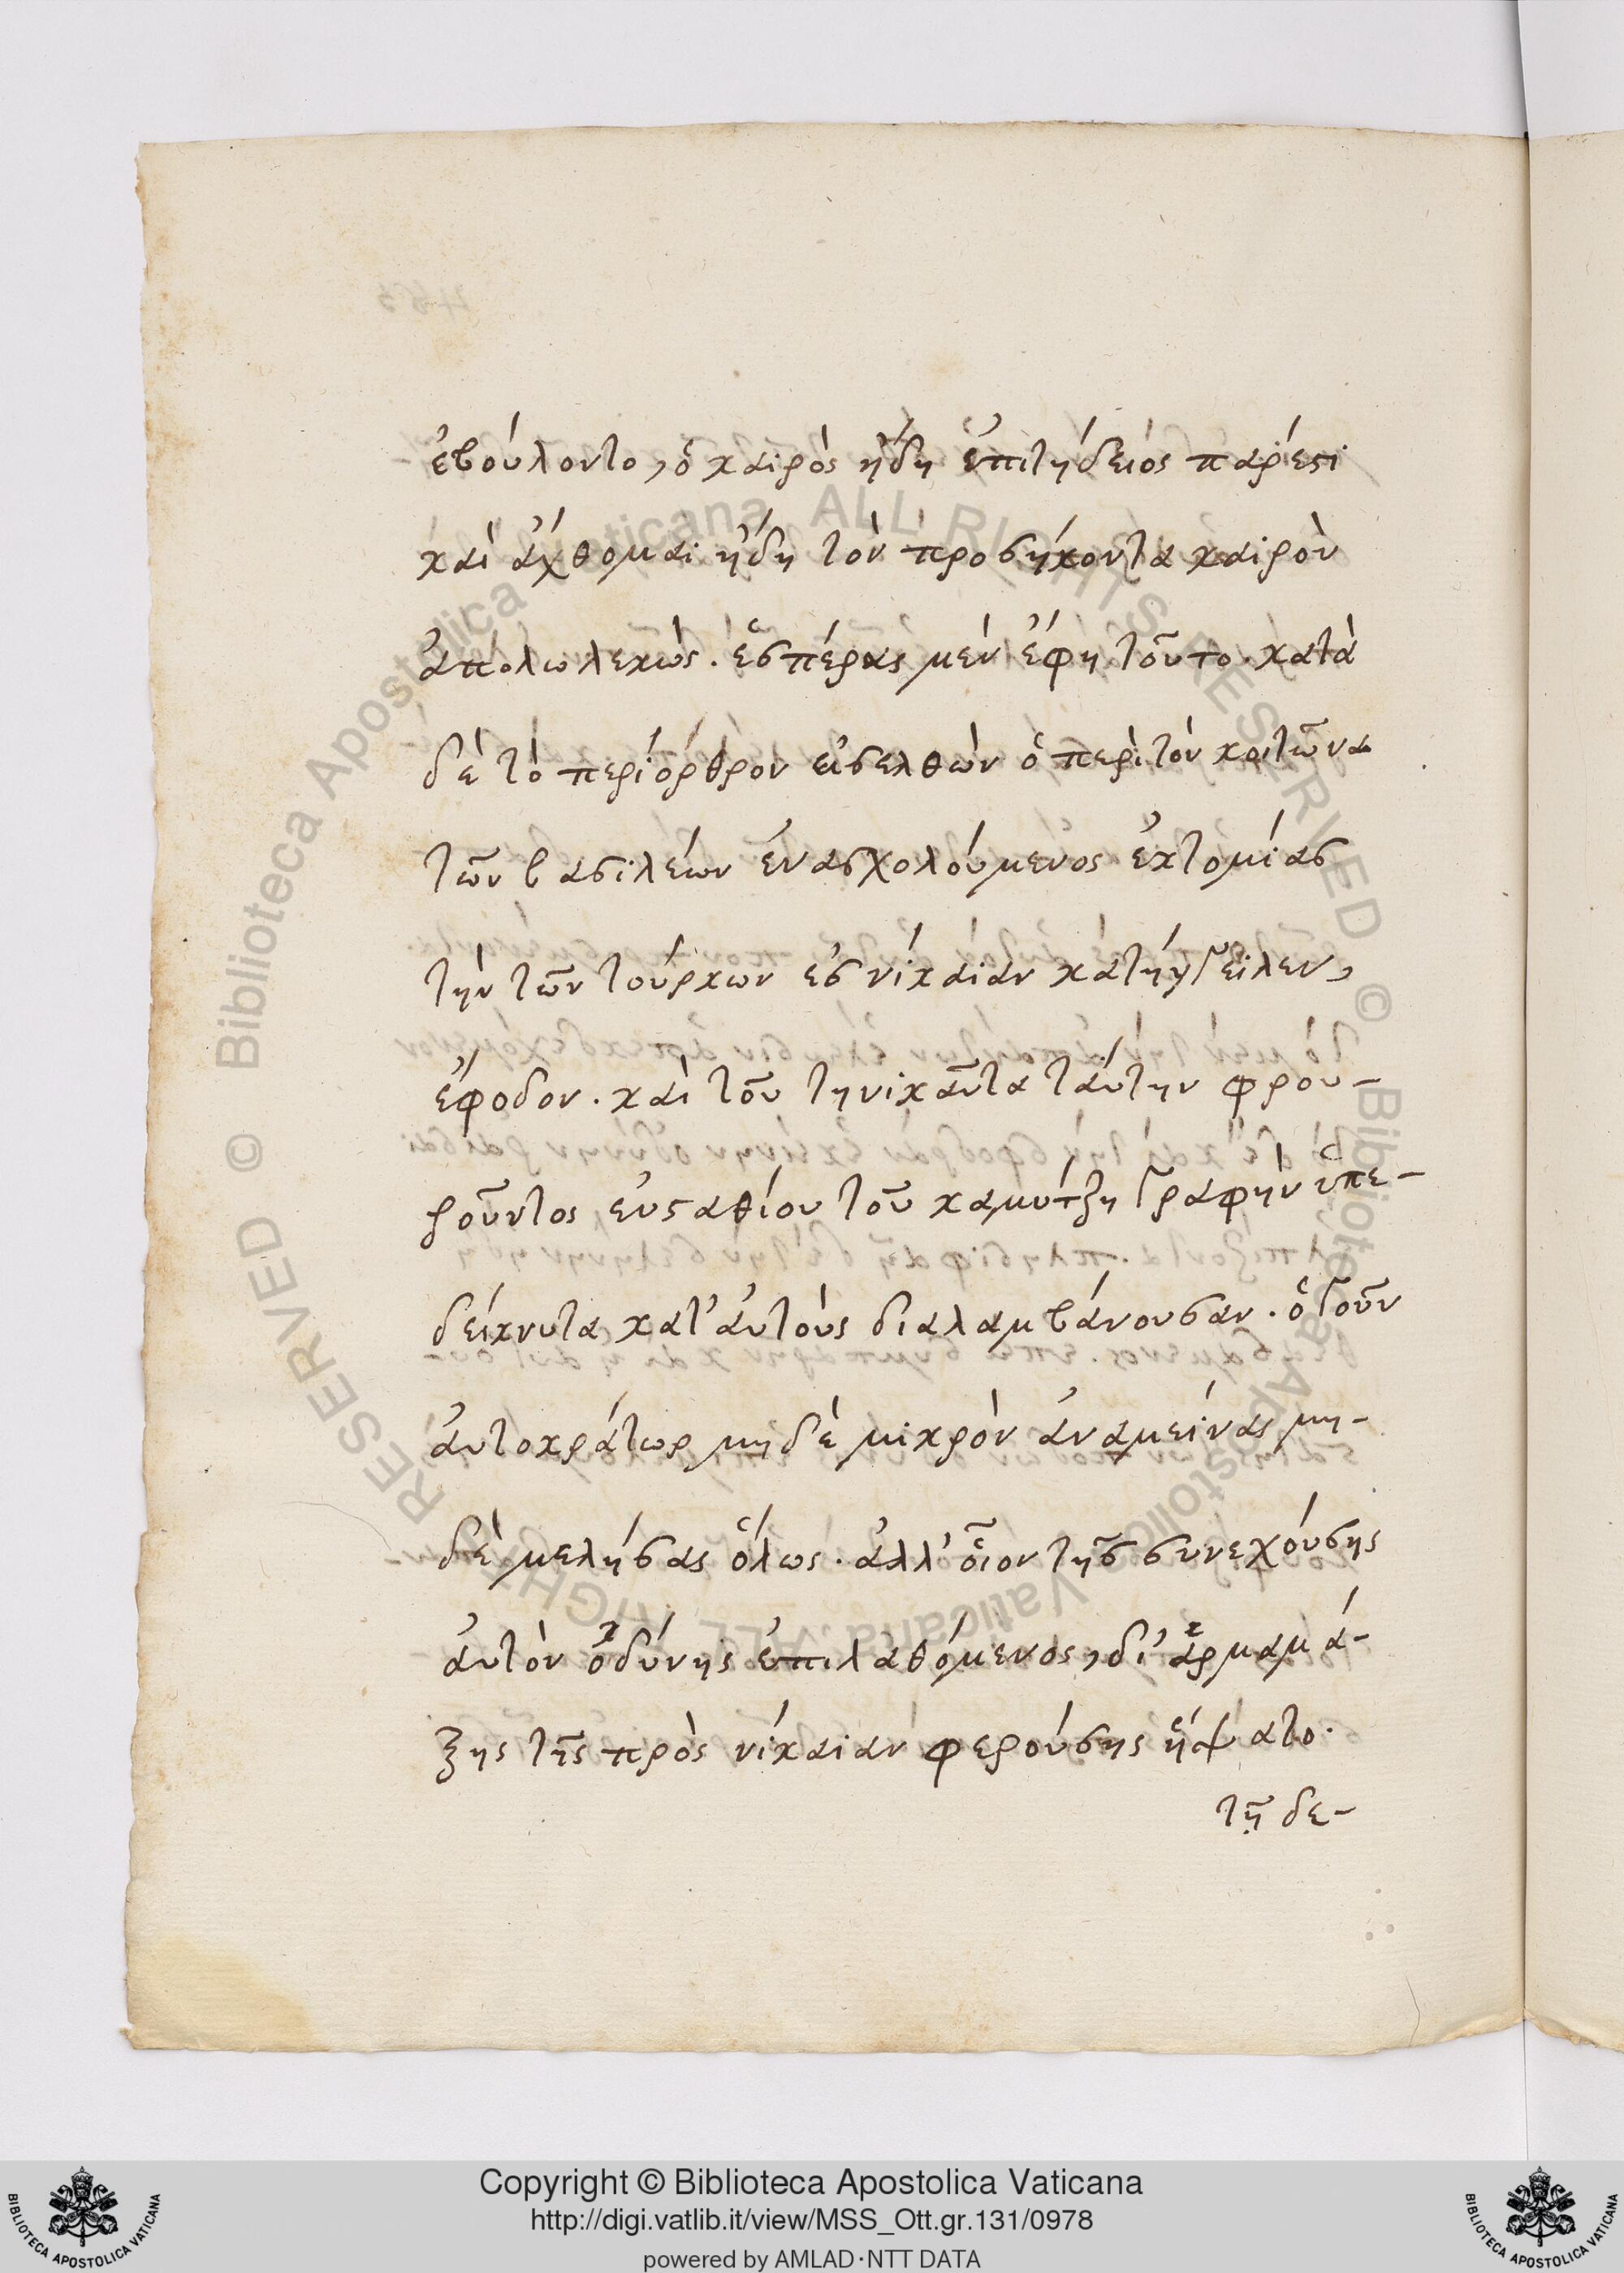 ἐβούλοντο, ὁ καιρὸς ἤδη ἐπιτήδειός πάρεστι
καὶ ἄχθομαι ἤδη τὸν προσήκοντα καιρὸν
ἀπολωλεκώς. ἑσπέρας μὲν ἔφη τοῦτο. κατὰ
δὲ τὸ περίορθρον εἰσελθὼν ὁ περὶ τὸν κοιτῶνα
τῶν βασιλέων ἐνασχολούμενος ἐκτομίας
τὴν τῶν τούρκων ἐς νίκαιαν κατήγγειλεν,
ἔφοδον. καὶ τοῦ τηνικαῦτα ταύτην φρου-
ροῦντος εὐσταθίου τοῦ καμύτζη γραφὴν ὑπε-
δείκνυτα κατ' αὐτοὺς διαλαμβάνουσαν. ὁ γοῦν
αὐτοκράτωρ μηδὲ μικρὸν ἀναμείνας μη-
δὲ μελήσας ὅλως. ἀλλ' οἷον τῆς συνεχούσης
αὐτὸν ὀδύνης ἐπιλαθόμενος, δι' ἁρμαμά-
ξης τῆς πρὸς νίκαιαν φερούσης ἥψατο.
τῇ δε-
Copyright © Biblioteca Apostolica Vaticana
http://digi.vatlib.it/view/MSS_Ott.gr.131/0978
powered by AMLAD·NTT DATA
BIBLIOTECA APOSTOLICA VATICANA
BIBLIOTECA APOSTOLICA VATICANA
© Biblioteca Apostolica Vaticana ALL RIGHTS RESERVED © Biblioteca Apostolica Vaticana ALL RIGHTS RESERVED